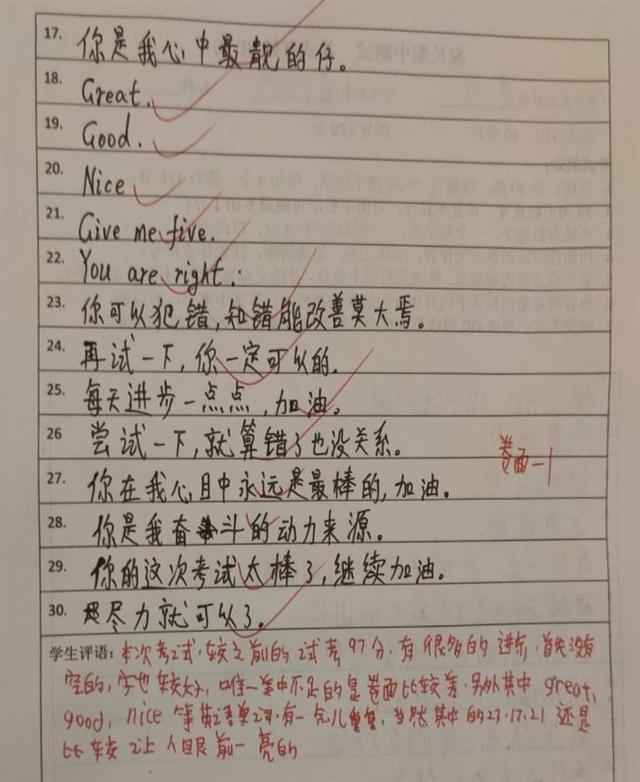 17. 你是我心中最靓的仔。
18. Great.
19. Good.
20. Nice
21. Give me five.
22. You are right.
23. 你可以犯错,知错能改善莫大焉。
24. 再试一下,你一定可以的.
25. 每天进步一点点,加油。
26 尝试一下,就算错了也没关系。
卷面-1
27. 你在我心目中永远是最棒的,加油。
28. 你是我奋斗的动力来源。
29. 你的这次考试太棒了,继续加油。
30. 尽力就可以了。
学生评语:本次考试,较之前的试考97分.有很多的进步,首先没有
空的,字也较好,唯一美中不足的是卷面比较差,另外其中great,
good, nice 等英语单词,有一点儿重复,当然其中的23.17.21还是
比较让人眼前一亮的